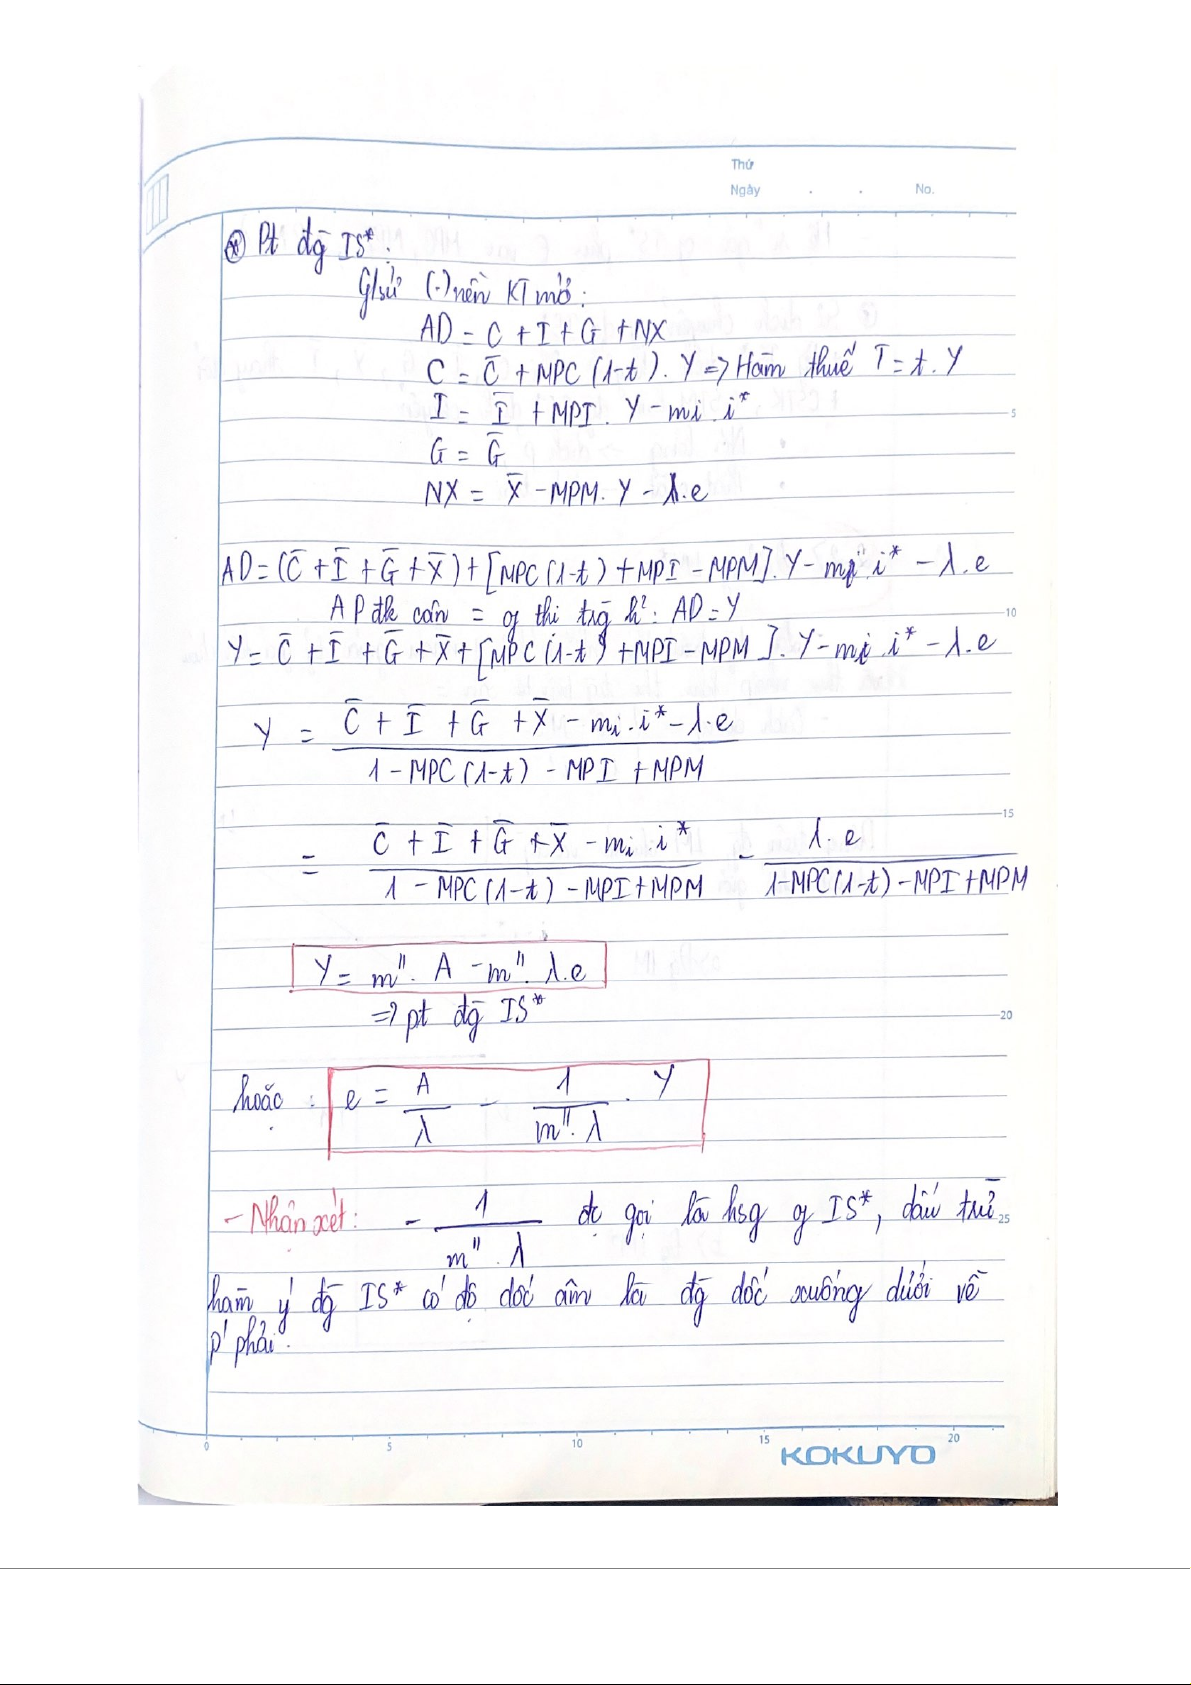 Thứ
Ngày . . No.
⊛ Pt đg̃ IS*:
G/sử (.) nền KT mở:
AD = C + I + G + NX
C = C̄ + MPC (1-t). Y => Hàm thuế T = t. Y
I = Ī + MPI. Y - mi. i*
G = Ḡ
NX = X̄ - MPM. Y - λ.e
AD = (C̄ + Ī + Ḡ + X̄) + [MPC(1-t) + MPI - MPM]. Y - mi. i* - λ.e
AP đk cân = g̣ thi trg̃ h²: AD = Y
Y = C̄ + Ī + Ḡ + X̄ + [MPC(1-t) + MPI - MPM]. Y - mi. i* - λ.e
Y = (C̄ + Ī + Ḡ + X̄ - mi. i* - λ.e) / (1 - MPC(1-t) - MPI + MPM)
= (C̄ + Ī + Ḡ + X̄ - mi. i*) / (1 - MPC(1-t) - MPI + MPM) - (λ.e) / (1-MPC(1-t) - MPI + MPM)
Y = m". A - m". λ.e
=> pt đg̃ IS*
hoặc : e = A / λ - 1 / (m". λ) . Y
- Nhận xét: - 1 / (m". λ) đc gọi là hsg g̣ IS*, dấu trừ
hàm ý đg̃ IS* có độ dốc âm là đg̃ dốc xuống dưới về
p' phải.
5
10
15
20
25
0 5 10 15 20
KOKUYO